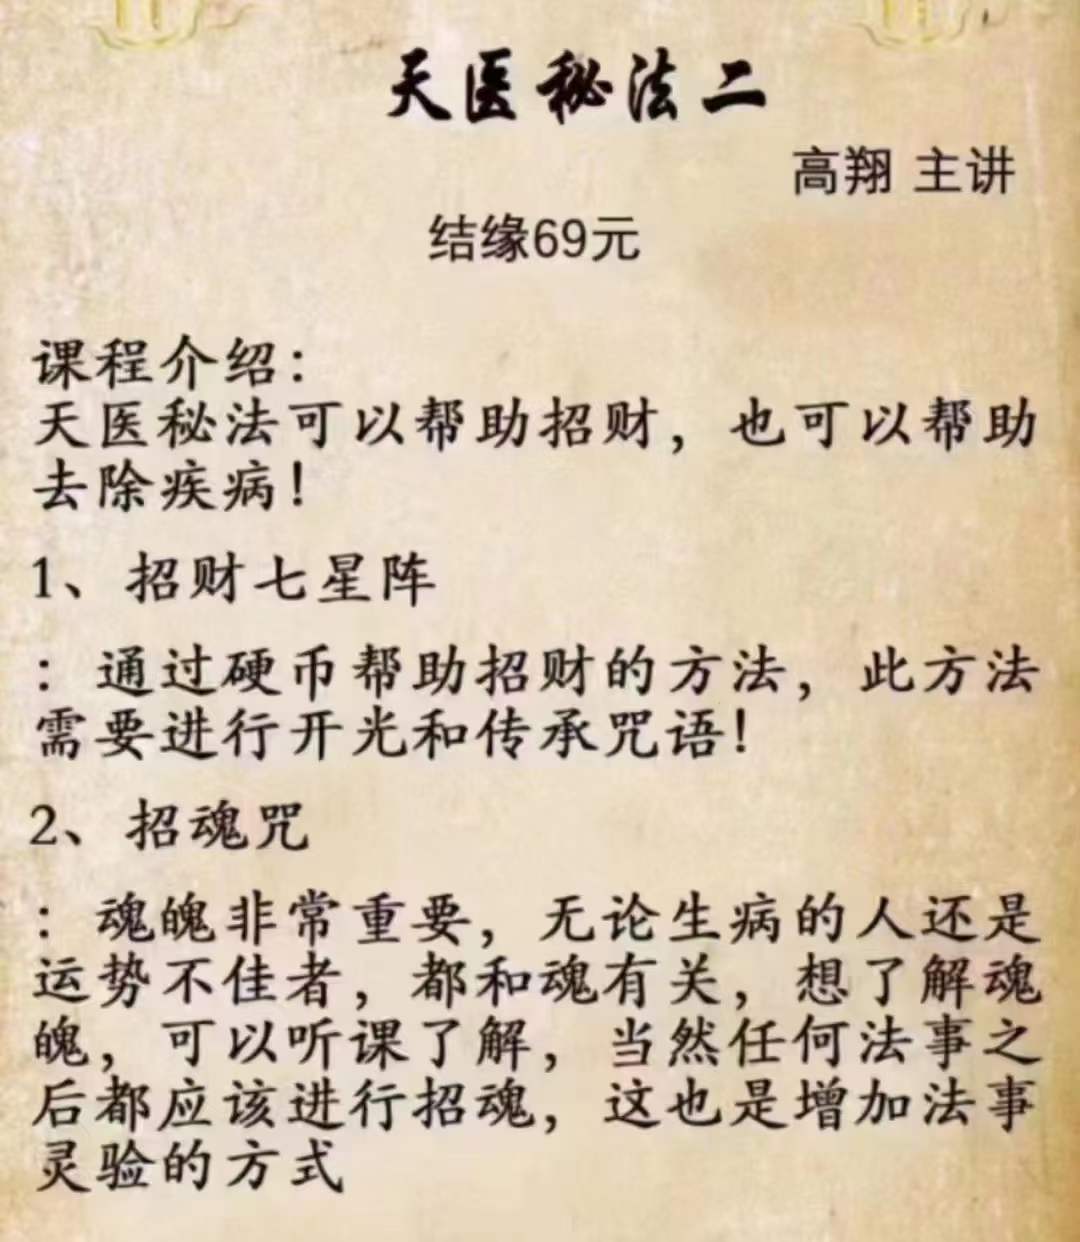 天医秘法二
高翔 主讲
结缘69元
课程介绍：
天医秘法可以帮助招财，也可以帮助
去除疾病！
1、招财七星阵
：通过硬币帮助招财的方法，此方法
需要进行开光和传承咒语！
2、招魂咒
：魂魄非常重要，无论生病的人还是
运势不佳者，都和魂有关，想了解魂
魄，可以听课了解，当然任何法事之
后都应该进行招魂，这也是增加法事
灵验的方式